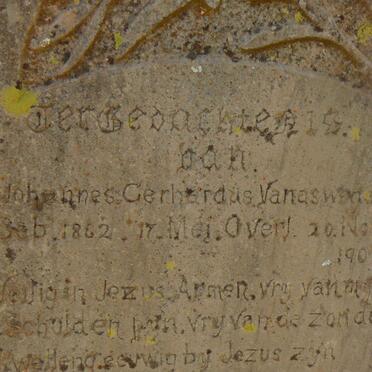 Ter Gedachtenis.
van
Johannes Gerhardus Vanaswe
Geb. 1862. 17. Mei. Overl. 20. No
190
Veilig in Jezus Armen, vry van
schulden pyn, vry van de zonde
eeuwig by Jezus zyn